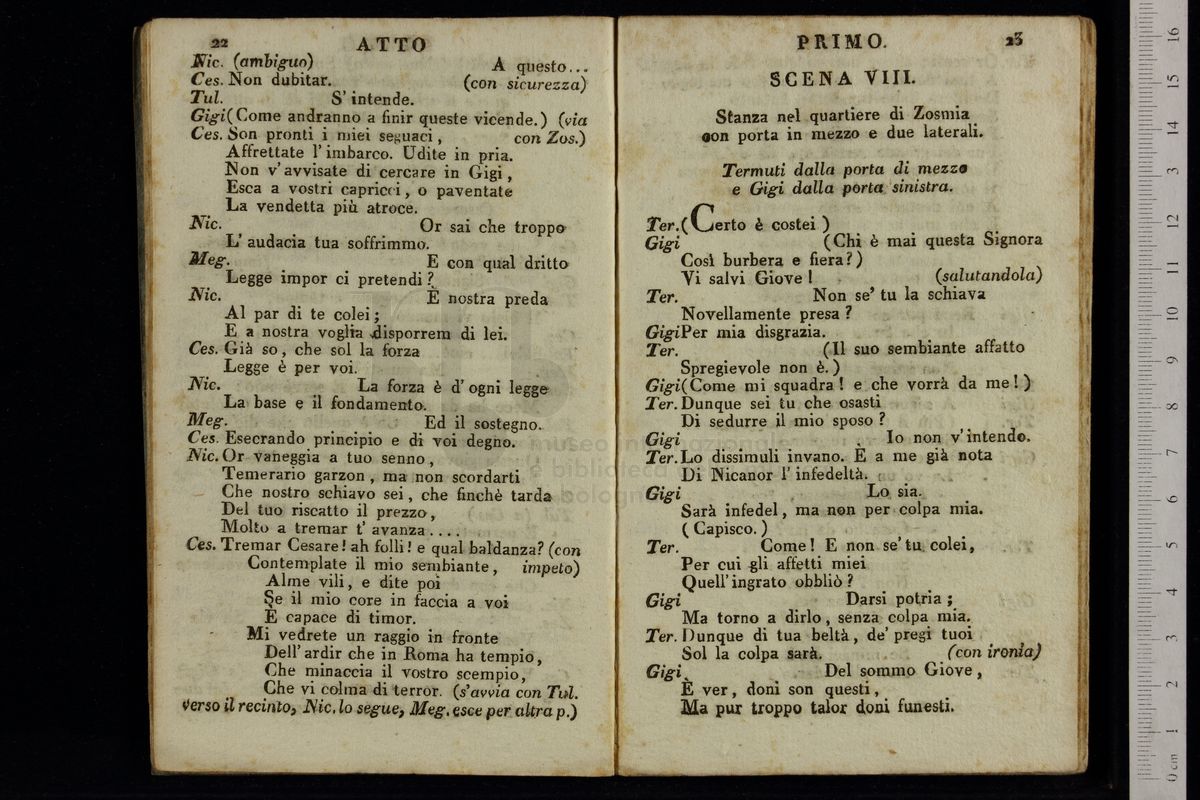 22 ATTO
Nic. (ambiguo) A questo...
Ces. Non dubitar. (con sicurezza)
Tul. S' intende.
Gigi (Come andranno a finir queste vicende.) (via
Ces. Son pronti i miei seguaci, con Zos.)
Affrettate l' imbarco. Udite in pria.
Non v' avvisate di cercare in Gigi,
Esca a vostri capricci, o paventate
La vendetta più atroce.
Nic. Or sai che troppo
L' audacia tua soffrimmo.
Meg. E con qual dritto
Legge impor ci pretendi?
Nic. È nostra preda
Al par di te colei;
E a nostra voglia disporrem di lei.
Ces. Già so, che sol la forza
Legge è per voi.
Nic. La forza è d' ogni legge
La base e il fondamento.
Meg. Ed il sostegno.
Ces. Esecrando principio e di voi degno.
Nic. Or vaneggia a tuo senno,
Temerario garzon, ma non scordarti
Che nostro schiavo sei, che finchè tarda
Del tuo riscatto il prezzo,
Molto a tremar t' avanza....
Ces. Tremar Cesare! ah folli! e qual baldanza? (con
Contemplate il mio sembiante, impeto)
Alme vili, e dite poi
Se il mio core in faccia a voi
È capace di timor.
Mi vedrete un raggio in fronte
Dell' ardir che in Roma ha tempio,
Che minaccia il vostro scempio,
Che vi colma di terror. (s'avvia con Tul.
verso il recinto, Nic. lo segue, Meg. esce per altra p.)
PRIMO. 23
SCENA VIII.
Stanza nel quartiere di Zosmia
con porta in mezzo e due laterali.
Termuti dalla porta di mezzo
e Gigi dalla porta sinistra.
Ter. (Certo è costei)
Gigi (Chi è mai questa Signora
Così burbera e fiera?)
Vi salvi Giove! (salutandola)
Ter. Non se' tu la schiava
Novellamente presa?
Gigi Per mia disgrazia.
Ter. (Il suo sembiante affatto
Spregievole non è.)
Gigi (Come mi squadra! e che vorrà da me!)
Ter. Dunque sei tu che osasti
Di sedurre il mio sposo?
Gigi Io non v' intendo.
Ter. Lo dissimuli invano. È a me già nota
Di Nicanor l' infedeltà.
Gigi Lo sia.
Sarà infedel, ma non per colpa mia.
(Capisco.)
Ter. Come! E non se' tu colei,
Per cui gli affetti miei
Quell' ingrato obbliò?
Gigi Darsi potria;
Ma torno a dirlo, senza colpa mia.
Ter. Dunque di tua beltà, de' pregi tuoi
Sol la colpa sarà. (con ironia)
Gigi Del sommo Giove,
È ver, doni son questi,
Ma pur troppo talor doni funesti.
museo internazionale
e biblioteca
bologna
0 cm 1 2 3 4 5 6 7 8 9 10 11 12 13 14 15 16